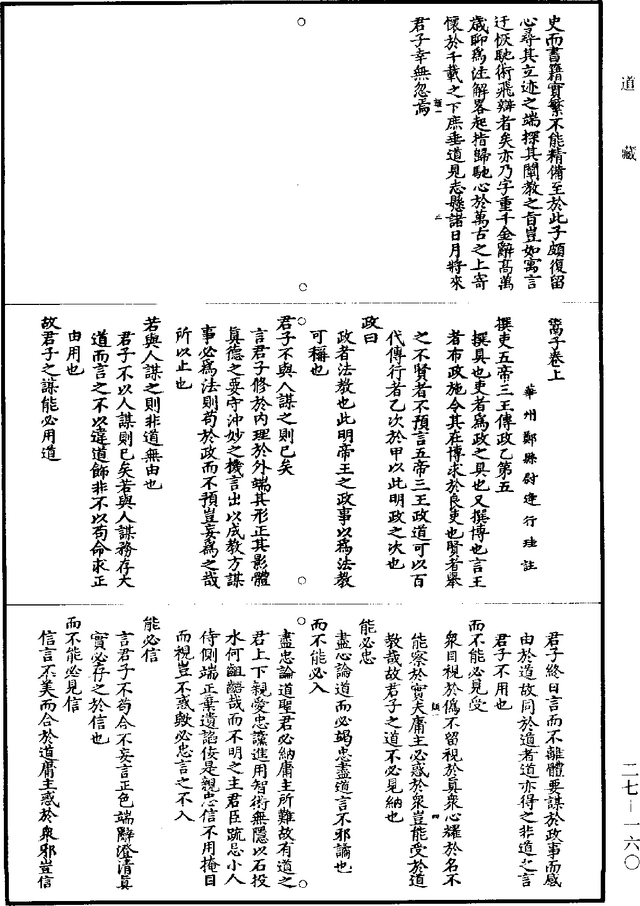 道藏
史而書籍實繁不能精備至於此子頗復留
心尋其立迹之端探其闡教之旨豈如寓言
迂恢馳術飛辯者矣亦乃字重千金辭高萬
歲聊為注解畧起指歸馳心於萬古之上寄
懷於千載之下庶垂道見志懸諸日月將來
君子幸無忽焉
鬻子卷上
華州鄭縣尉逄行珪註
撰吏五帝三王傳政乙第五
撰具也吏者為政之具也又撰博也言王
者布政施令其在博求於良吏也賢者舉
之不賢者不預言五帝三王政道可以百
代傳行者乙次於甲以此明政之次也
政曰
政者法教也此明帝王之政事以為法教
可稱也
君子不與人謀之則已矣
言君子修於內理於外端其形正其影體
真德之要守沖妙之機言出以成教方謀
事必為法則苟於政而不預豈妄為之哉
所以止也
若與人謀之則非道無由也
君子不以人謀則已矣若與人謀務存大
道而言之不以違道飾非不以苟命求正
由用也
故君子之謀能必用道
君子終日言而不離體要謀於政事而咸
由於道故同於道者道亦得之非道之言
君子不用也
而不能必見受
衆目視於偽不留視於真衆心耀於名不
能察於實夫庸主必惑於衆豈能受於道
教哉故君子之道不必見納也
能必忠
盡心論道而必竭忠盡道言不邪謟也
而不能必入
盡忠論道聖君必納庸主所難故有道之
君上下親愛忠讜進用智術無隱以石投
水何齟齬哉而不明之主君臣疏忌小人
侍側端正棄遺諂佞是親忠信不用掩目
而視豈不惑歟必忠言之不入
能必信
言君子不苟合不妄言正色端辭澄清真
實必存之於信也
而不能必見信
信言不美而合於道庸主惑於衆邪豈信
二七－一六〇